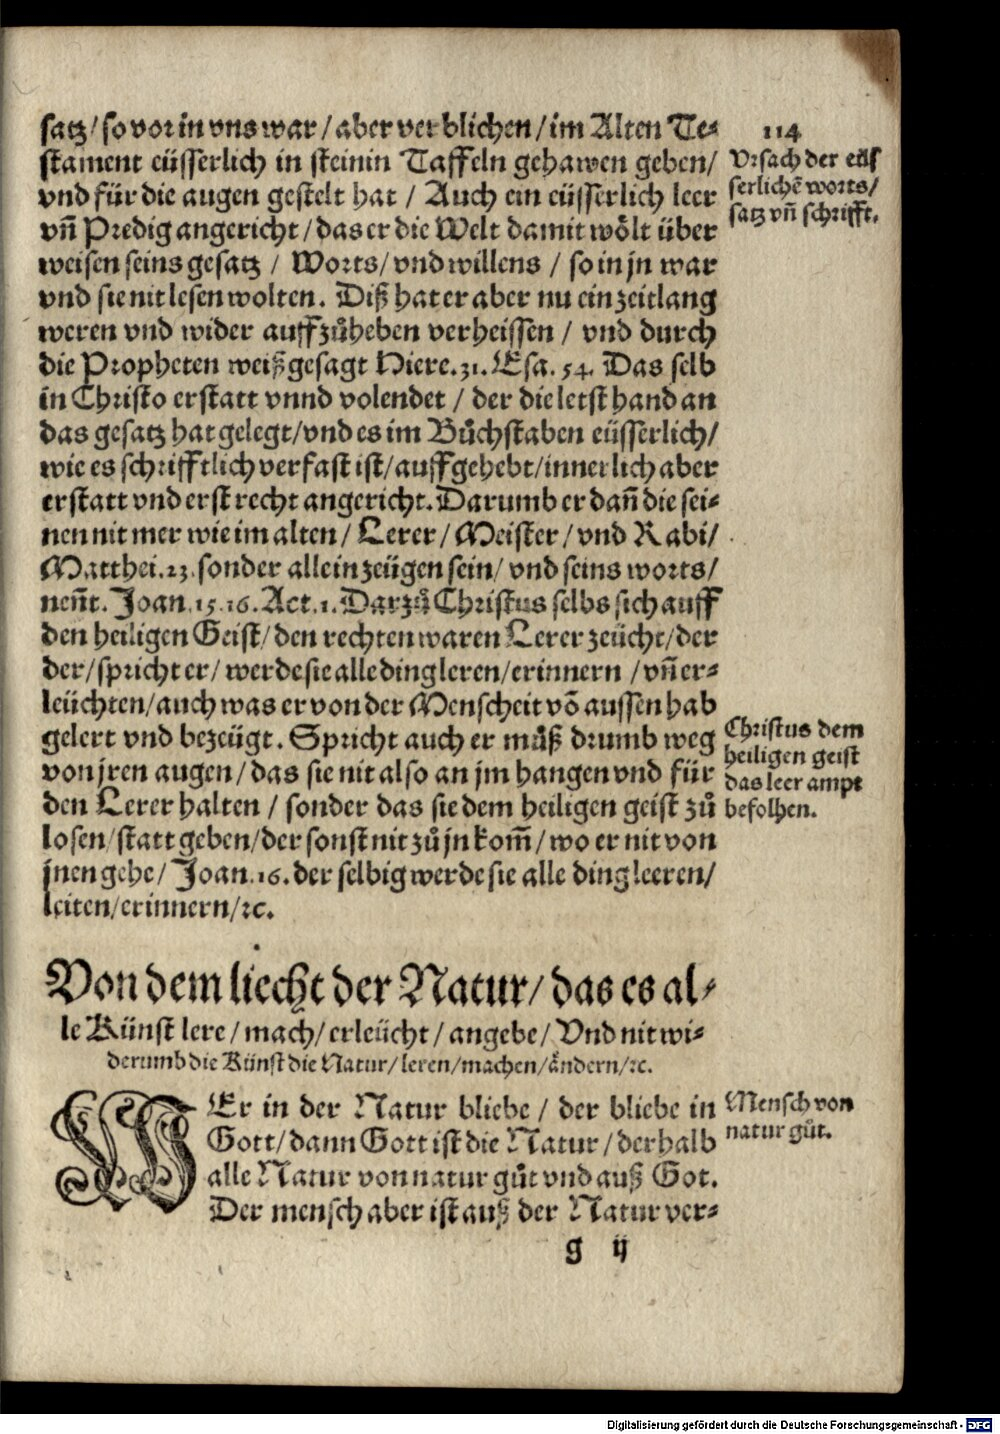 114
satz / so vor in vns war / aber verblichen / im Alten Te-
stament eüsserlich in steinin Taffeln gehawen geben /
vnd für die augen gestelt hat / Auch ein eüsserlich leer
vñ Predig angericht / das er die Welt damit wölt über
weisen seins gesatz / Worts / vnd willens / so in jn war
vnd sie nit lesen wolten. Diß hat er aber nu ein zeitlang
weren vnd wider auffzůheben verheissen / vnd durch
die Propheten weißgesagt Hiere. 31. Esa. 54. Das selb
in Christo erstatt vnnd volendet / der die letst hand an
das gesatz hat gelegt / vnd es im Bůchstaben eüsserlich /
wie es schrifftlich verfast ist / auffgehebt / innerlich aber
erstatt vnd erst recht angericht. Darumb er dañ die sei-
nen nit mer wie im alten / Lerer / Meister / vnd Rabi /
Matthei. 23. sonder allein zeügen sein / vnd seins worts /
neñt. Joan. 15. 16. Act. 1. Darzů Christus selbs sich auff
den heiligen Geist / den rechten waren Lerer zeücht / der
der / spricht er / werde sie alle ding leren / erinnern / vñ er-
leüchten / auch was er von der Menscheit võ aussen hab
gelert vnd bezeügt. Spricht auch er můß drumb weg
von jren augen / das sie nit also an jm hangen vnd für
den Lerer halten / sonder das sie dem heiligen geist zů
losen / statt geben / der sonst nit zů jn kom̃ / wo er nit von
jnen gehe / Joan. 16. der selbig werde sie alle ding leeren /
leiten / erinnern / ꝛc.
Vrsach der eüs
serlichẽ worts /
satz vñ schrifft.
Christus dem
heiligen geist
das leer ampt
befolhen.
Von dem liecht der Natur / das es al-
le Künst lere / mach / erleücht / angebe / Vnd nit wi-
derumb die Künst die Natur / leren / machen / ändern / ꝛc.
WEr in der Natur bliebe / der bliebe in
Gott / dann Gott ist die Natur / derhalb
alle Natur von natur gůt vnd auß Got.
Der mensch aber ist auß der Natur ver-
Mensch von
natur gůt.
g ij
Digitalisierung gefördert durch die Deutsche Forschungsgemeinschaft - DFG